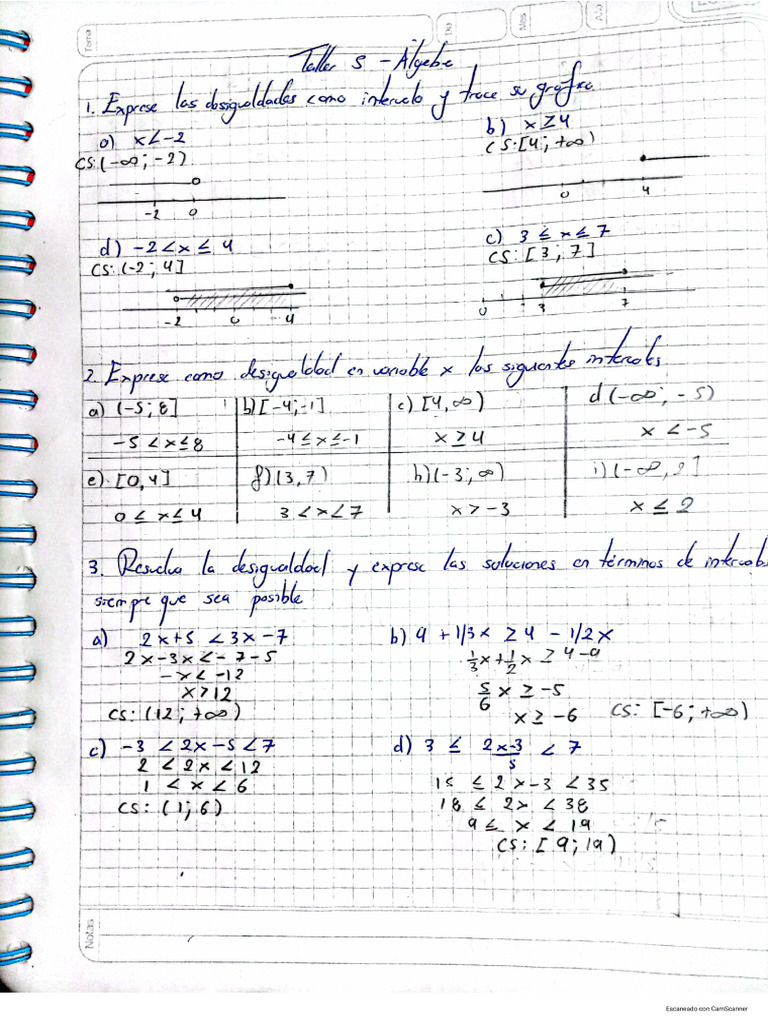 Tema
Día
Mes
Año
Taller 5 - Álgebra
1. Exprese las desigualdades como intervalo y trace su grafica
a) x < -2
CS: (-∞; -2)
-2 0
b) x ≥ 4
CS: [4; +∞)
0 4
d) -2 < x ≤ 4
CS: (-2; 4]
-2 0 4
c) 3 ≤ x ≤ 7
CS: [3; 7]
0 3 7
2. Exprese como desigualdad en variable x los siguientes intervalos
a) (-5; 8] b) [-4; -1] c) [4, ∞) d (-∞; -5)
-5 < x ≤ 8 -4 ≤ x ≤ -1 x ≥ 4 x < -5
e) [0, 4] f) (3, 7) h) (-3; ∞) i) (-∞, 2]
0 ≤ x ≤ 4 3 < x < 7 x > -3 x ≤ 2
3. Resuelva la desigualdad y exprese las soluciones en términos de intervalos
siempre que sea posible
a) 2x+5 < 3x-7
2x-3x < -7-5
-x < -12
x > 12
CS: (12; +∞)
b) 9 + 1/3x ≥ 4 - 1/2x
1/3x + 1/2x ≥ 4-9
5/6 x ≥ -5
x ≥ -6 CS: [-6; +∞)
c) -3 < 2x-5 < 7
2 < 2x < 12
1 < x < 6
CS: (1; 6)
d) 3 ≤ 2x-3/5 < 7
15 ≤ 2x-3 < 35
18 ≤ 2x < 38
9 ≤ x < 19
CS: [9; 19)
Notas
Escaneado con CamScanner